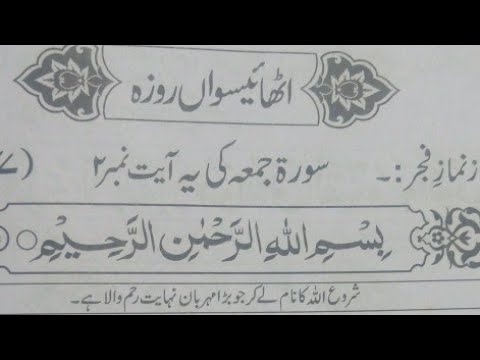 اٹھائیسواں روزہ
ز نمازِ فجر:۔ سورۃ جمعہ کی یہ آیت نمبر ۲ (۷
بِسْمِ اللهِ الرَّحْمٰنِ الرَّحِيْمِ
شروع اللہ کا نام لے کر جو بڑا مہربان نہایت رحم والا ہے۔